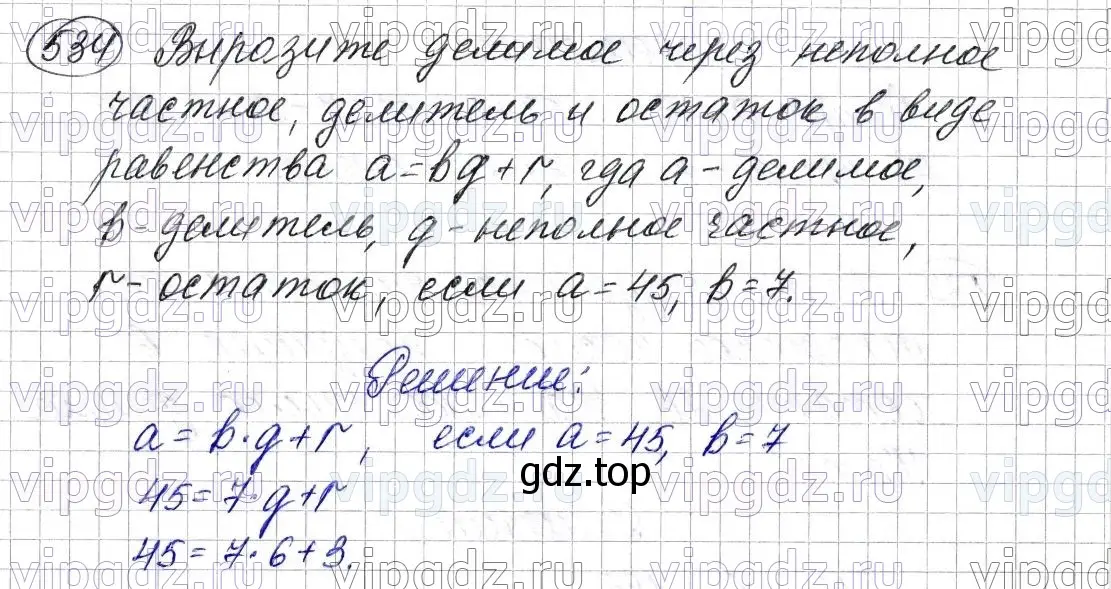 534 Выразите делимое через неполное
частное, делитель и остаток в виде
равенства a=bq+r, где a - делимое,
b - делитель, q - неполное частное,
r - остаток, если a=45, b=7.
Решение:
a = b·q+r, если a=45, b=7
gdz.top
45=7·q+r
45=7·6+3.
vipgdz.ru